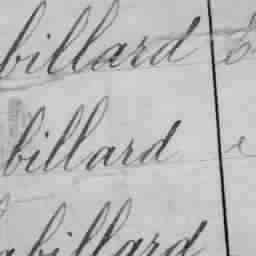 billard
billard
abillard